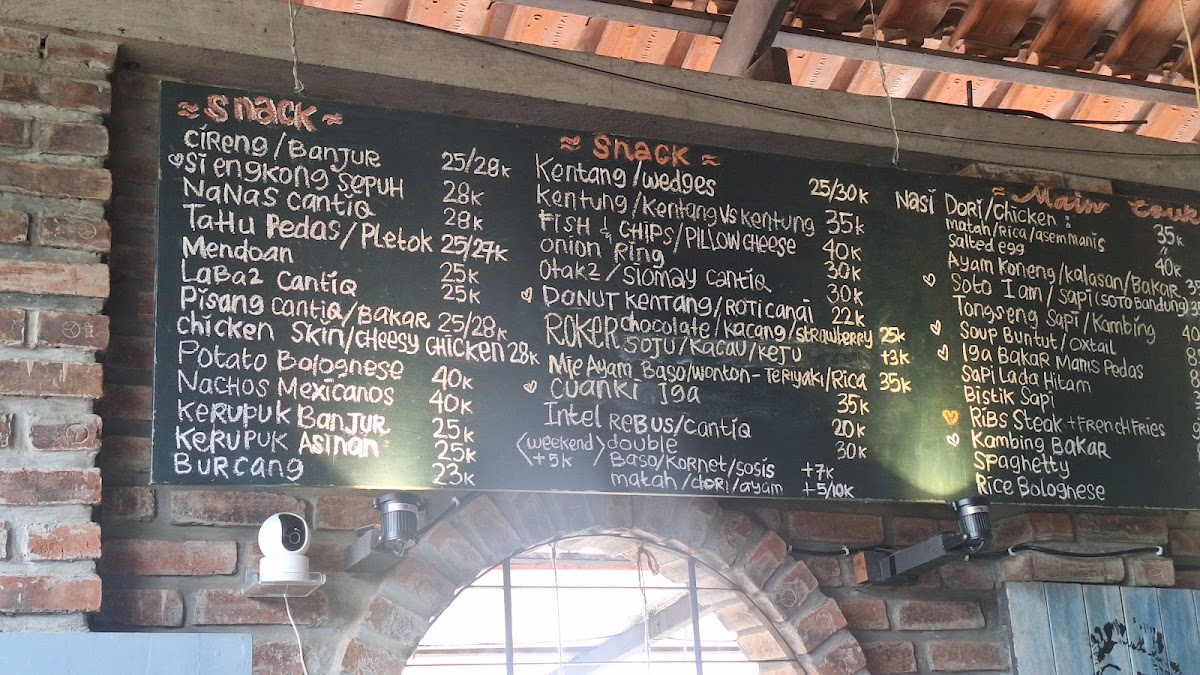 ≈ Snack ≈
CIRENG/BANJUR 25/28K
♡SI ENGKONG SEPUH 28K
NANAS CANTIQ 28K
TAHU PEDAS/PLETOK 25/27K
Mendoan 25K
LABA2 CANTIQ 25K
PISANG CANTIQ/BAKAR 25/28K
chicken SKIN/CHEESY CHICKEN 28K
POTATO Bolognese 40K
NACHOS MEXICANOS 40K
KERUPUK BANJUR 25K
KERUPUK ASINAN 25K
BURCANG 23K
≈ Snack ≈
Kentang/wedges 25/30K
Kentung/Kentang VS Kentung 35K
FISH & CHIPS/PILLOW CHEESE 40K
onion Ring 30K
Otak2/SIOMAY CANTIQ 30K
♡ DONUT KENTANG/ROTI CANAI 22K
ROKER chocolate/kacang/strawberry 25K
SUJU/KACAU/KEJU +3K
Mie Ayam Baso/wonton-Teriyaki/Rica 35K
♡ CUANKI Iga 35K
Intel REBUS/CANTIQ 20K
<weekend +5K> double 30K
BASO/KORNET/SOSIS +7K
matah/DORI/ayam +5/10K
≈ Main
Nasi DORI/chicken: 35K
matah/Rica/asem manis
Salted egg 40K
Ayam Koneng/kalasan/Bakar
♡ Soto Iam/Sapi (SOTO BANDUNG)
Tongseng Sapi/Kambing
♡ Soup Buntut/Oxtail
♡ Iga Bakar Manis Pedas
Sapi Lada Hitam
Bistik Sapi
♡ RIBS Steak + FRENCH FRIES
♡ Kambing BAKAR
Spaghetty
Rice Bolognese